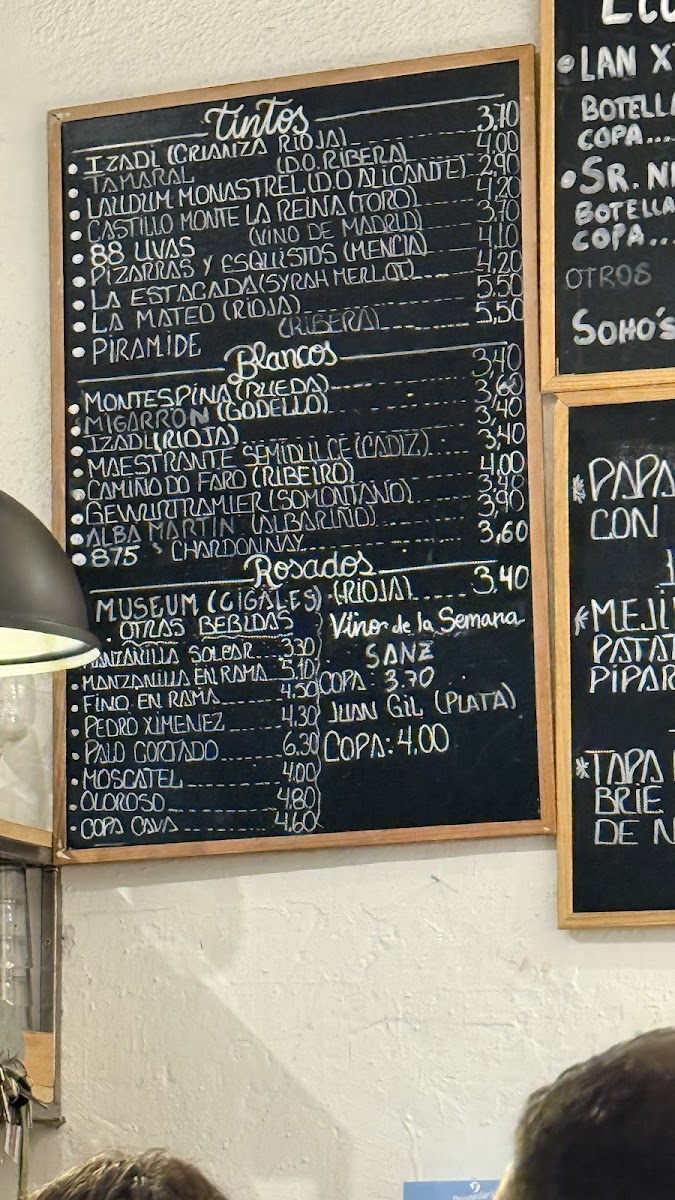 Tintos
IZADI (CRIANZA RIOJA) 3,70
TAMARAL (D.O. RIBERA) 4,00
LAUDUM MONASTREL (D.O ALICANTE) 2,90
CASTILLO MONTE LA REINA (TORO) 4,20
88 UVAS (VINO DE MADRID) 3,70
PIZARRAS Y ESQUISTOS (MENCIA) 4,10
LA ESTACADA (SYRAH MERLOT) 4,20
LA MATEO (RIOJA) 5,50
PIRAMIDE (RIBERA) 5,50
Blancos
MONTESPINA (RUEDA) 3,40
MIGARRON (GODELLO) 3,60
IZADI (RIOJA) 3,40
MAESTRANTE SEMIDULCE (CADIZ) 3,40
CAMIÑO DO FARO (RIBEIRO) 4,00
GEWURTRAMIER (SOMONTANO) 3,40
ALBA MARTIN (ALBARIÑO) 3,90
875 CHARDONNAY 3,60
Rosados
MUSEUM (CIGALES) (RIOJA) 3,40
OTRAS BEBIDAS
MANZANILLA SOLEAR 3'30
MANZANILLA EN RAMA 5.10
FINO EN RAMA 4.50
PEDRO XIMENEZ 4.30
PALO CORTADO 6.30
MOSCATEL 4.00
OLOROSO 4.80
COPA CAVA 4.60
Vino de la Semana
SANZ
COPA: 3.70
JUAN GIL (PLATA)
COPA: 4,00
LAN
BOTELLA
COPA....
SR.
BOTELLA
COPA...
OTROS
SOHO'S
CON
BRIE
DE
TAPA